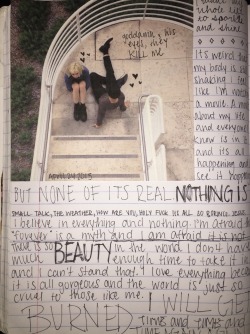 whole li
to sparkle
and shine
goddamn, his
eyes, they
KILL ME
april 24 2015
Its weird
my body is
shaking I fe
like I'm not
a movie. A m
about my lif
and everyone
know is in it
and its all
happening and
see it happen
BUT NONE OF ITS REAL NOTHING IS
SMALL TALK, THE WEATHER, HOW ARE YOU, HOLY FUCK ITS ALL SO BORING DEAR
I believe in everything and nothing. I'm afraid
forever is a myth and I am afraid it is not
that is so BEAUTY in the world I don't have
much enough time to take it
and I can't stand that. I love everything because
it is all gorgeous and the world is just so
cruel to those like me. I WILL GET
BURNED time and time and